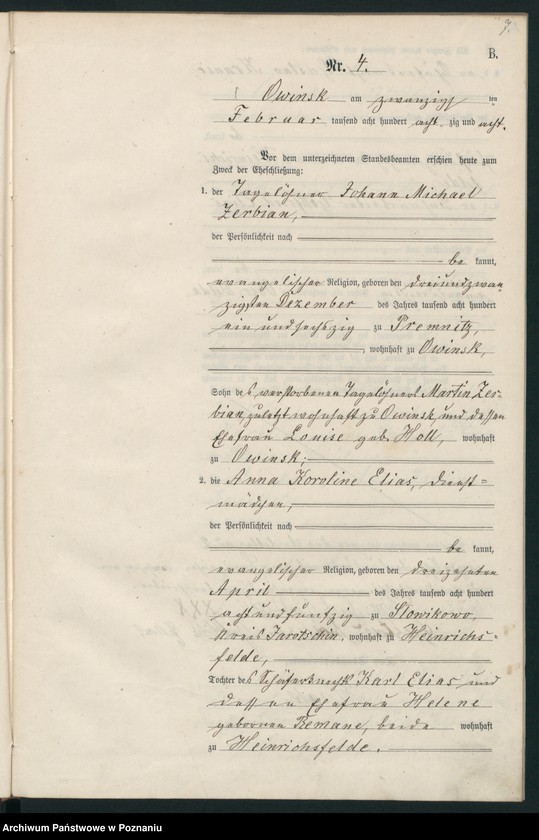 7.
B.
Nr. 4.
Owinsk am zwanzigsten
Februar tausend acht hundert acht zig und acht.
Vor dem unterzeichneten Standesbeamten erschien heute zum
Zweck der Eheschließung:
1. der Tagelöhner Johann Michael
Zerbian,
der Persönlichkeit nach
be kannt,
evangelischer Religion, geboren den dreiundzwan
zigsten Dezember des Jahres tausend acht hundert
ein und sechszig zu Premnitz,
, wohnhaft zu Owinsk,
Sohn des verstorbenen Tagelöhners Martin Zer-
bian, zuletzt wohnhaft zu Owinsk, und dessen
Ehefrau Louise geb. Holl, wohnhaft
zu Owinsk;
2. die Anna Karoline Elias, Dienst=
mädchen,
der Persönlichkeit nach
be kannt,
evangelischer Religion, geboren den dreizehnten
April des Jahres tausend acht hundert
achtundfunfzig zu Slowikowo,
Kreis Jarotschin, wohnhaft zu Heinrichs-
felde,
Tochter des Schäferknechts Karl Elias und
dessen Ehefrau Helene
geborenen Remane, beide wohnhaft
zu Heinrichsfelde.
Archiwum Państwowe w Poznaniu